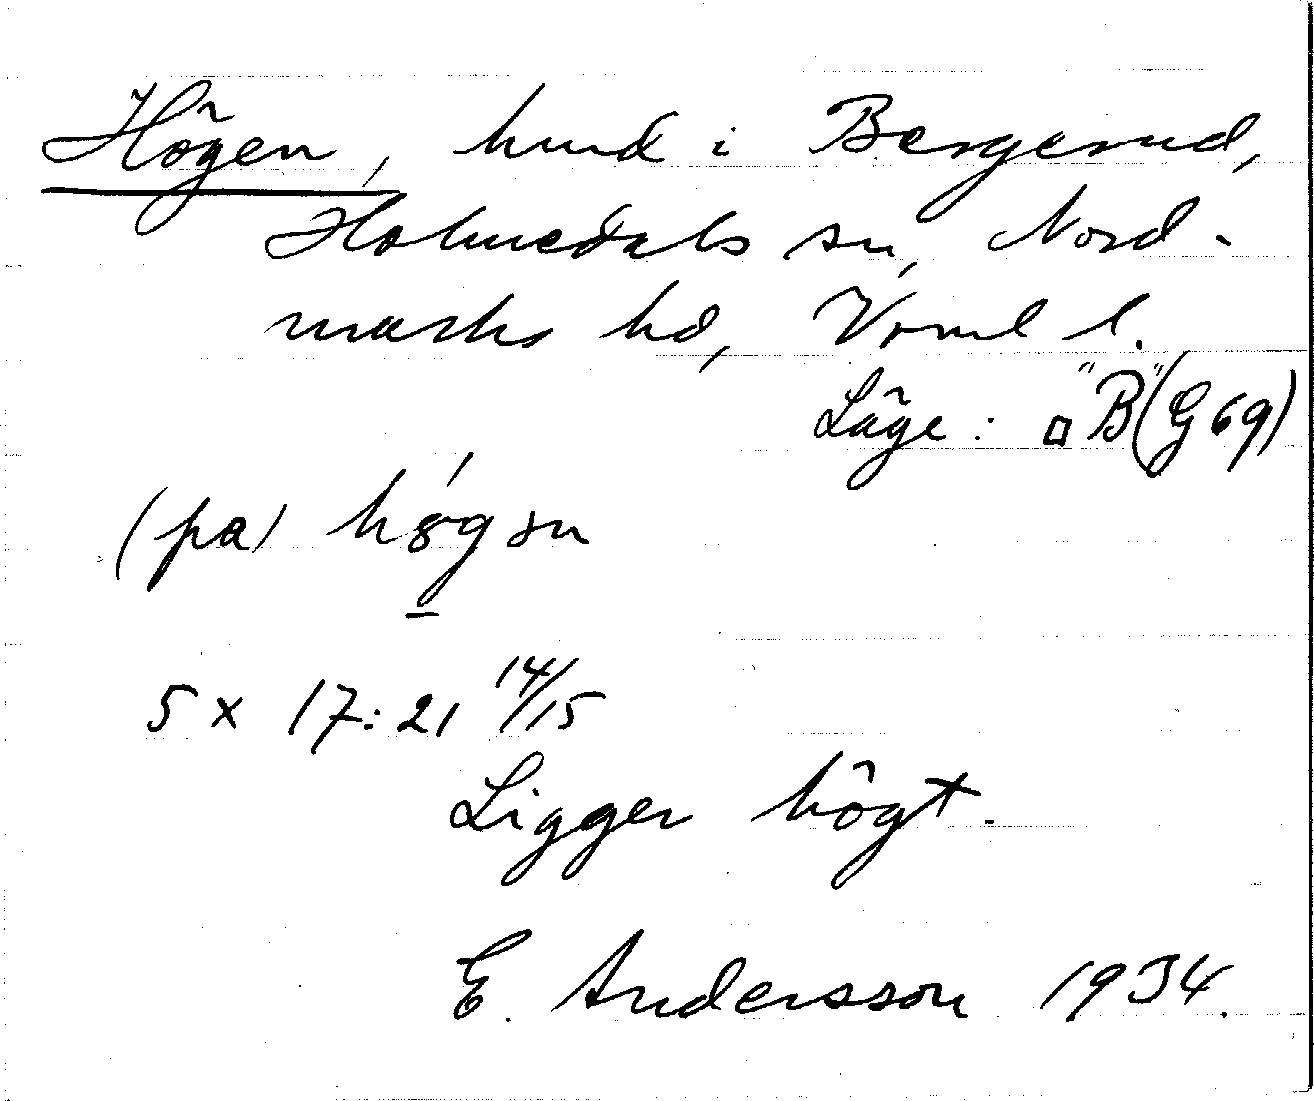 Högen, hmd i Bergerud,
Holmedals sn, Nord-
marks hd, Vrml l.
Läge: □ "B" (G 69)
(pa) høgən
5 x 17:21 14/15
Ligger högt.
E. Andersson 1934.